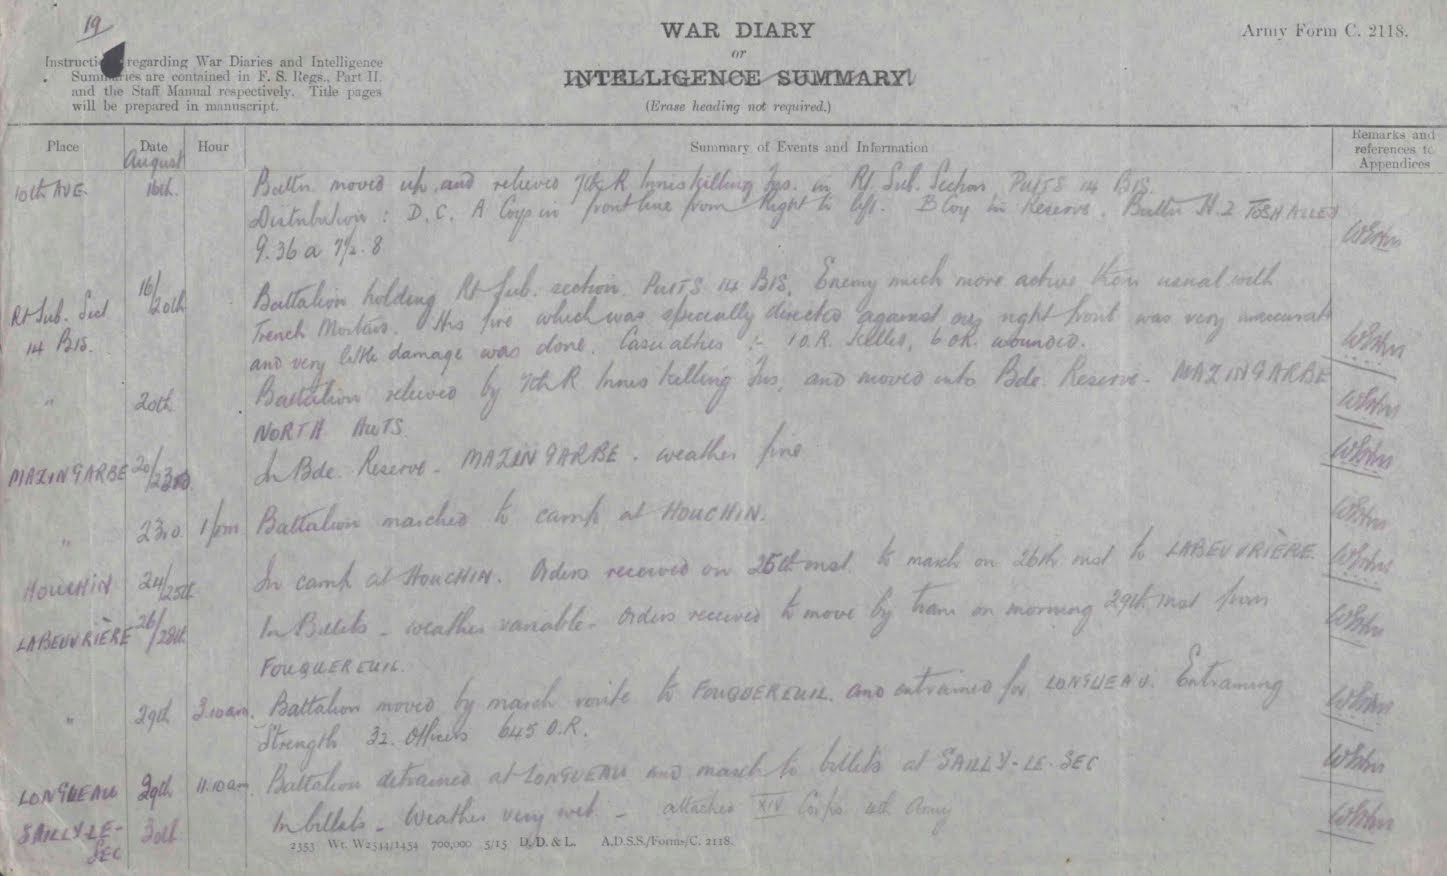 19
WAR DIARY
or
INTELLIGENCE SUMMARY.
(Erase heading not required.)
Army Form C. 2118.
Instructions regarding War Diaries and Intelligence
Summaries are contained in F. S. Regs., Part II.
and the Staff Manual respectively. Title pages
will be prepared in manuscript.
Place Date Hour Summary of Events and Information Remarks and references to Appendices
August
10th AVE. 16th. Battn moved up and relieved 7th R Inniskilling Fus. in Rt Sub. Section, PUITS 14 BIS.
Distribution: D. C. A Coys in front line from Right to left. B Coy in Reserve. Battn H.Q TOSH ALLEY
G. 36 a 7½.8
Rt Sub. Sect 16/20th Battalion holding Rt Sub. section. PUITS 14 BIS. Enemy much more active than usual with
14 BIS. Trench Mortars. His fire which was specially directed against our right front was very inaccurate
and very little damage was done. Casualties :- 1 O.R. Killed, 6 OR. wounded.
" 20th Battalion relieved by 7th R Inniskilling Fus. and moved into Bde. Reserve - MAZINGARBE
NORTH HUTS
MAZINGARBE 20/23rd. In Bde. Reserve - MAZINGARBE - weather fine
" 23rd 1 pm Battalion marched to camp at HOUCHIN.
HOUCHIN 24/25th In camp at HOUCHIN. Orders received on 25th inst. to march on 26th inst to LABEUVRIÈRE
LABEUVRIÈRE 26/28th In Billets - weather variable - Orders received to move by train on morning 29th inst from
FOUQUEREUIL.
" 29th 3.10am. Battalion moved by march route to FOUQUEREUIL and entrained for LONGUEAU. Entraining
Strength 32. Officers 645 O.R.
LONGUEAU 29th 11.10am Battalion detrained at LONGUEAU and march to billets at SAILLY-LE-SEC
SAILLY-LE- 30th In billets - Weather very wet - attached XIV Corps 4th Army
SEC
2353 Wt. W2544/1454 700,000 5/15 D. D. & L. A.D.S.S./Forms/C. 2118.